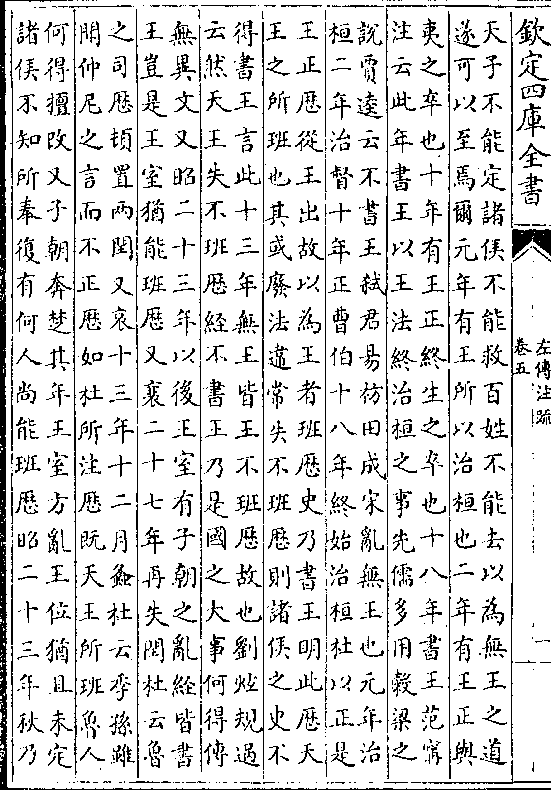 欽定四庫全書
左傳注疏
卷五
一
天子不能定諸侯不能救百姓不能去以為無王之道
遂可以至焉爾元年有王所以治桓也二年有王正與
夷之卒也十年有王正終生之卒也十八年書王范甯
注云此年書王以王法終治桓之事先儒多用穀梁之
說賈逵云不書王弒君易祊田成宋亂無王也元年治
桓二年治督十年正曹伯十八年終始治桓杜以正是
王正歷從王出故以為王者班歷史乃書王明此歷天
王之所班也其或廢法違常失不班歷則諸侯之史不
得書王言此十三年無王皆王不班歷故也劉炫規過
云然天王失不班歷經不書王乃是國之大事何得傳
無異文又昭二十三年以後王室有子朝之亂經皆書
王豈是王室猶能班歷又襄二十七年再失閏杜云魯
之司歷頓置兩閏又哀十三年十二月螽杜云季孫雖
聞仲尼之言而不正歷如杜所注歷既天王所班魯人
何得擅改又子朝奔楚其年王室方亂王位猶且未定
諸侯不知所奉復有何人尚能班歷昭二十三年秋乃